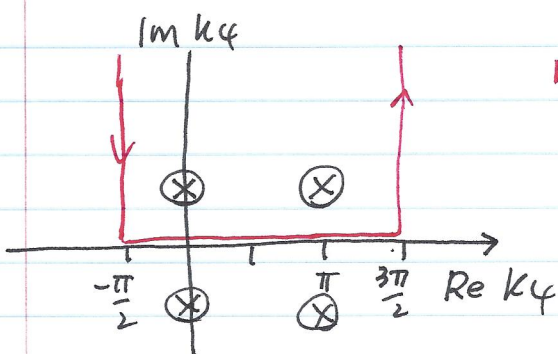 Im k4
-π/2 π 3π/2 Re k4